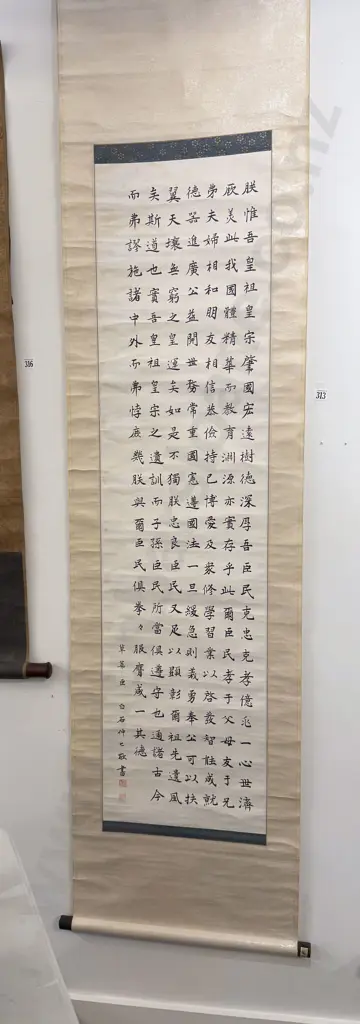 朕惟吾皇祖皇宗肇國宏遠樹德深厚吾臣民克忠克孝億兆一心世濟
厥美此我國體精華而教育淵源亦實存乎此爾臣民孝于父母友于兄
弟夫婦相和朋友相信恭儉持己博愛及衆修學習業以啓發智能成就
德器進廣公益開世務常重國憲遵國法一旦緩急則義勇奉公可以扶
翼天壤無窮之皇運矣如是不獨朕忠良臣民又足以顯彰爾祖先遺風
矣斯道也實吾皇祖皇宗之遺訓而子孫臣民所當俱遵守也通諸古今
而弗謬施諸中外而弗悖庶幾朕與爾臣民俱拳々服膺咸一其德
臣 白石仲 敬書
316
313